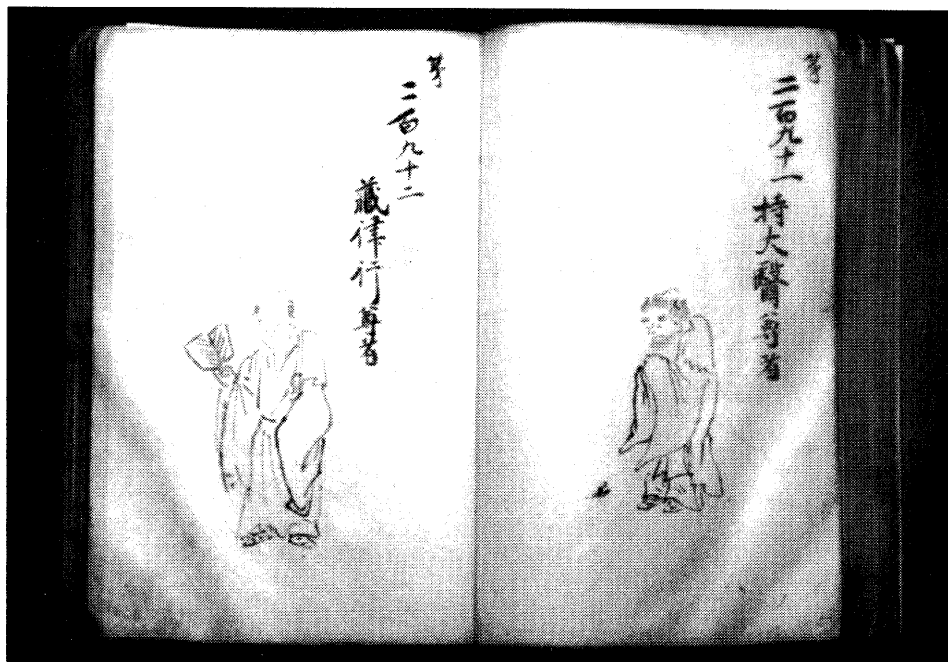 第
二百九十一
持大醫尊者
第
二百九十二
藏律行尊者